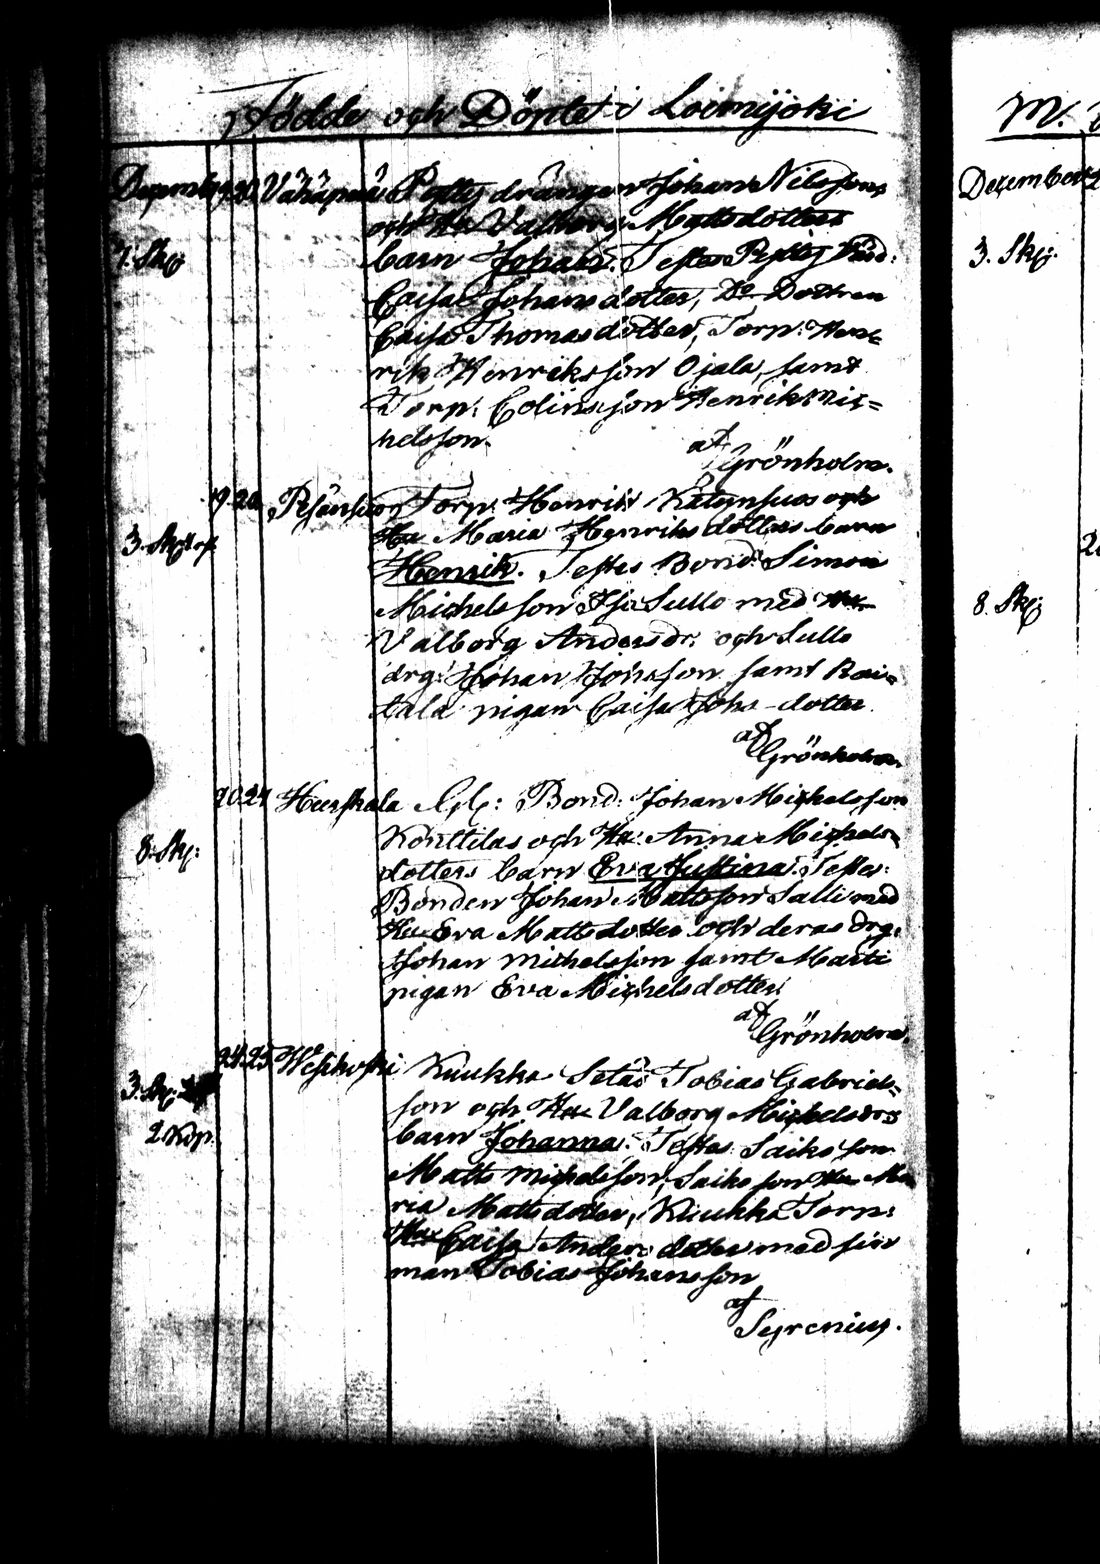 Födde och Döpte i Loimijoki
Decemb. 19. 20. Vähäperä Pesttis drängen Johan Nilssons
och Hu Valborg Mattsdotters
7. Skp barn Johan. Testes Pesttis Värd:
Caisa Johansdotter, Do Dottren
Caisa Thomasdotter, Torp: Hen=
rik Henriksson Ojala, samt
Torp: Colinsson Henrik Mic=
helsson.
af Grönholm.
19. 20. Torp: Henrik och
3. Hu Maria Henriksdotters barn
Henrik. Testes Bond: Simon
Michelsson Iso Sullo med Hu
Valborg Andersdr: och Sullo
drg: Johan Johsson samt Rai=
tala pigan Caisa Johs-dotter
af Grönholm.
20. 21 Hurskala Bond: Johan Michelsson
Konttilas och Hu: Anna Michels=
8. Skp: dotters barn Eva Justina. Testes:
Bonden Johan Mattsson Salli med
Hu Eva Mattsdotter och deras drg.
Johan Michelsson samt Marti
pigan Eva Michelsdotter.
af Grönholm.
24. 25 Wesikoski Kuukka Tobias Gabriels=
3. Skp: son och Hu Valborg Michelsdrs
2 Kop. barn Johanna. Testes Saiks son
Matts Michelsson, Saiks son Hu Ma
ria Mattsdotter, Kuukka Torp:
Hu Caisa Andersdotter med sin
man Tobias Johansson
af Syrenius.
M.
December
3. Skp:
8. Skp: